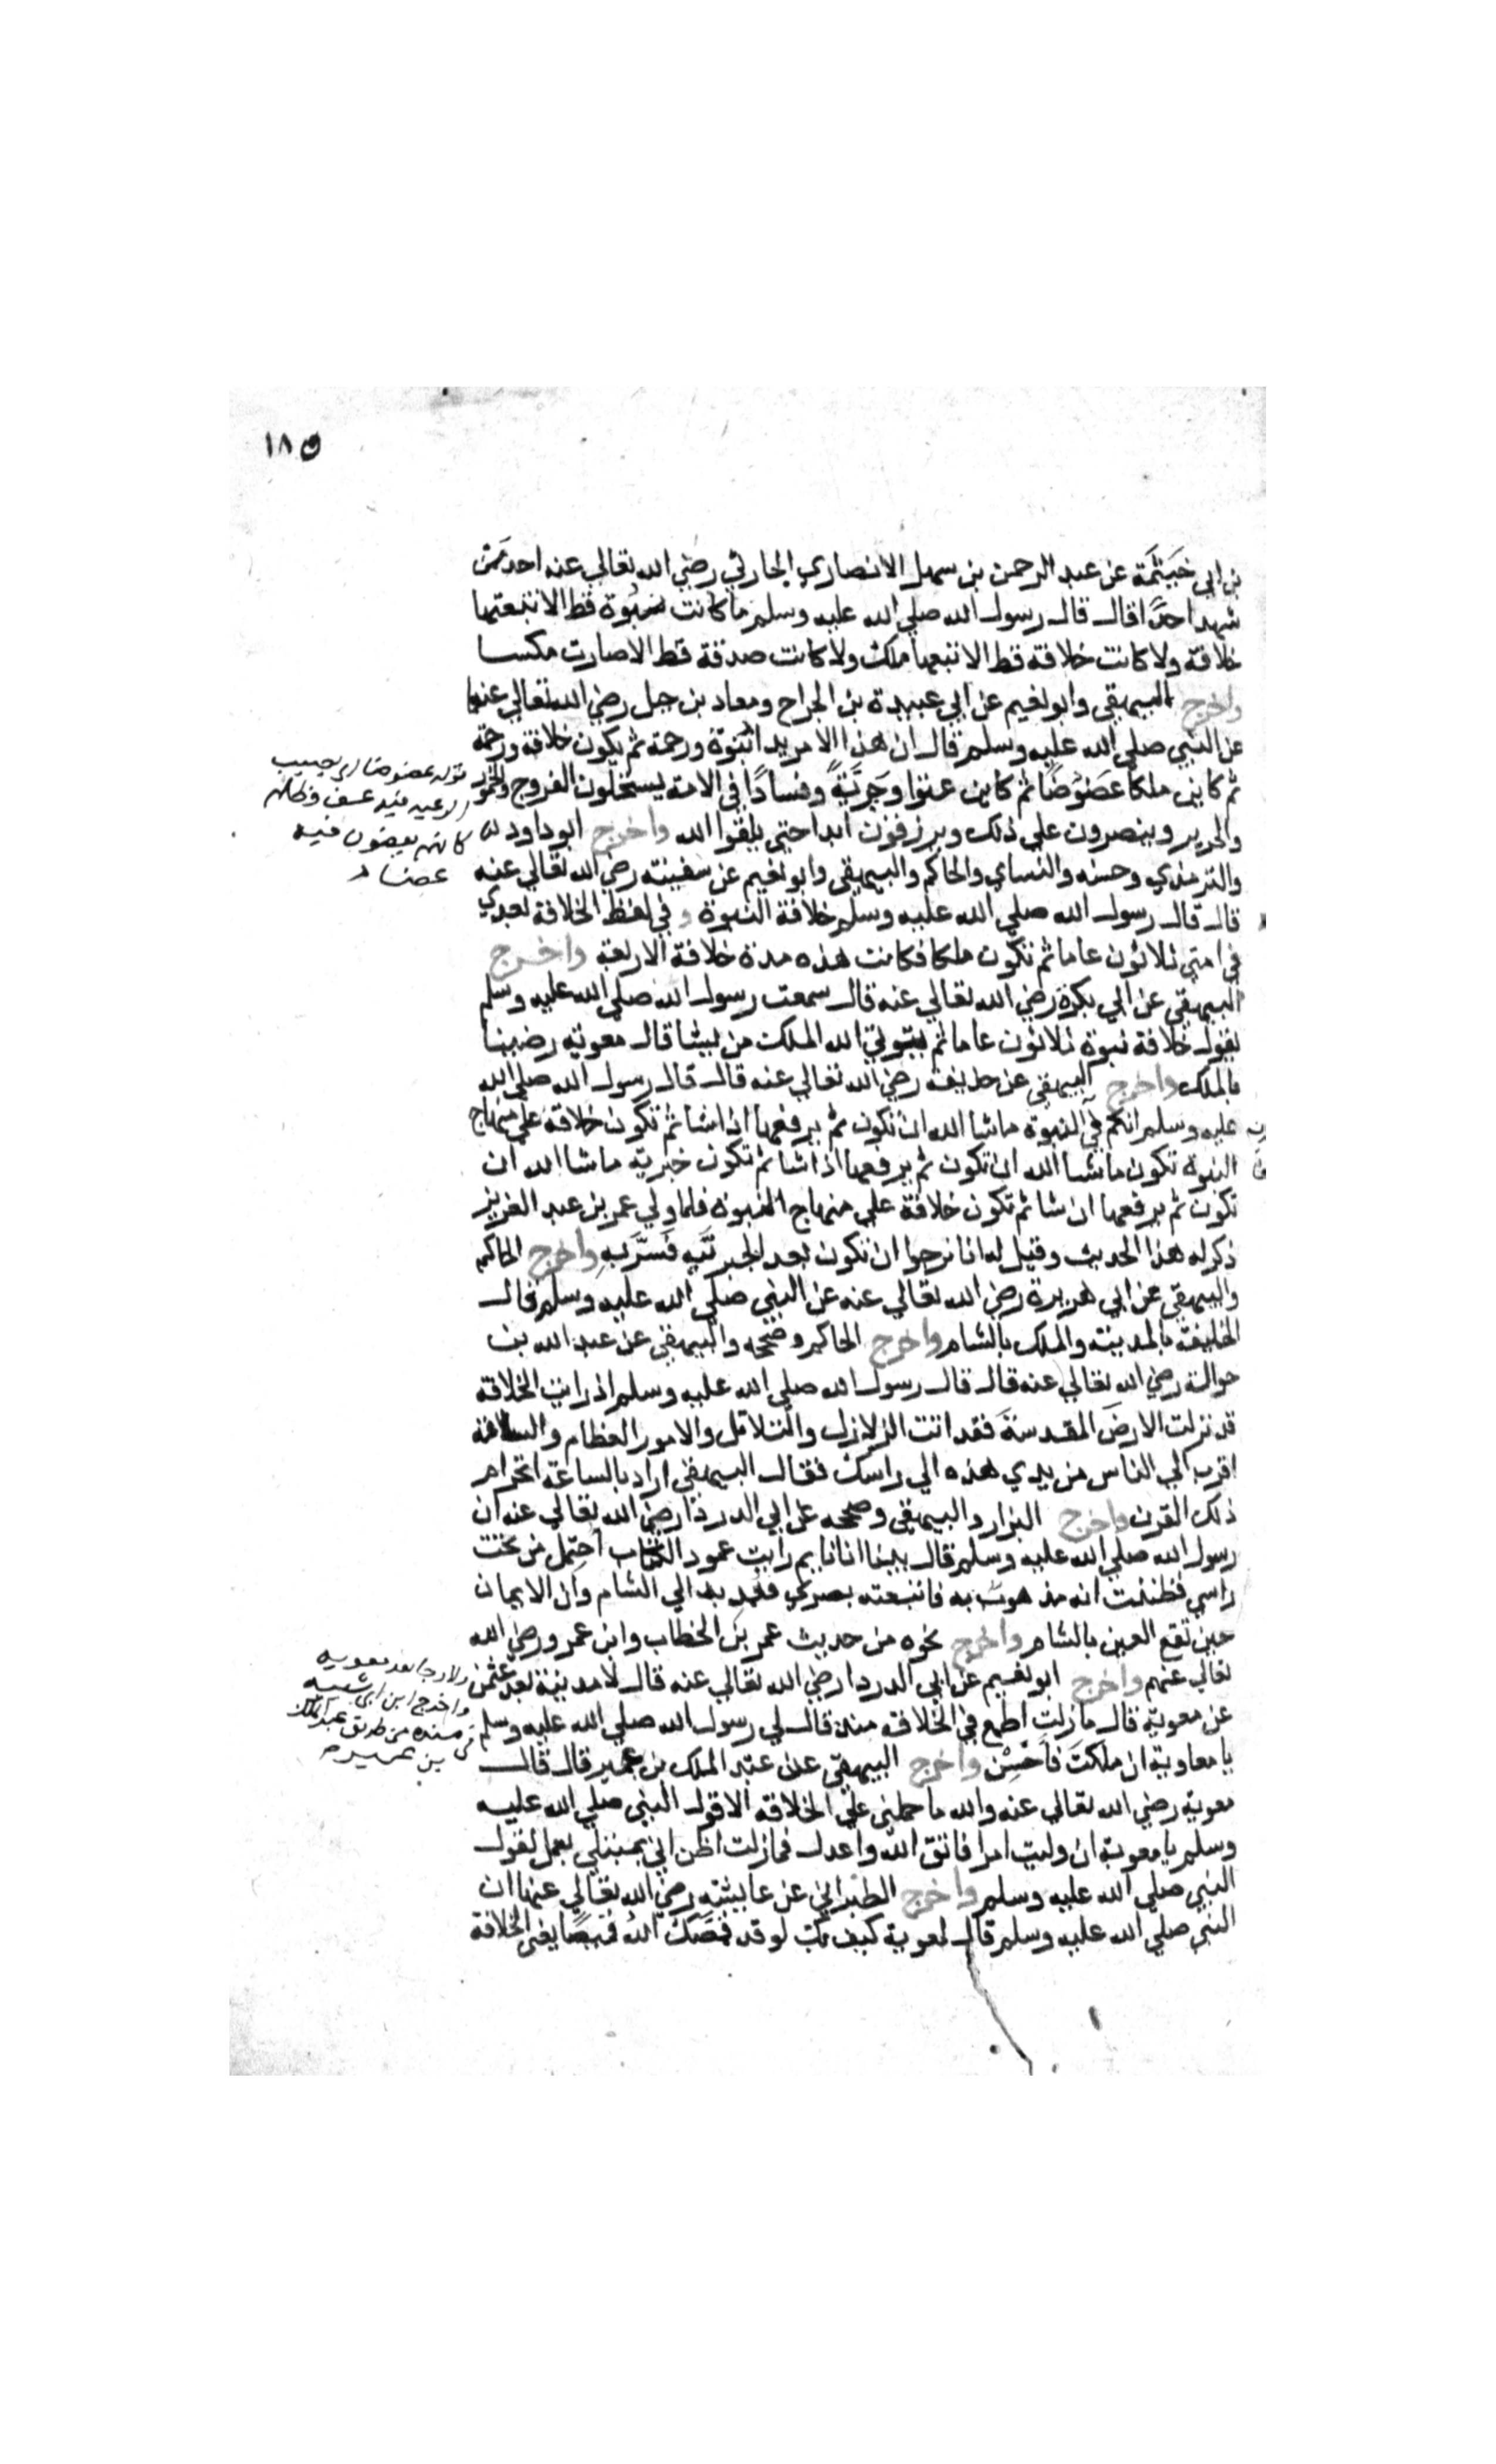 ١٨٥
بن ابي خَيثَمَة عن عبد الرحمن بن سهل الانصاري الحارثي رضي الله تعالي عنه احد من
شهد احدًا قال قال رسول الله صلي الله عليه وسلم ما كانت نبوة قط الا تبعتها
خلافة ولا كانت خلافة قط الا تبعها ملك ولا كانت صدقة قط الا صارت مكسا
واخرج البيهقي وابو نعيم عن ابي عبيدة بن الجراح ومعاد بن جبل رضي الله تعالي عنهما
عن النبي صلي الله عليه وسلم قال ان هذا الامر بدا نبوة ورحمة ثم يكون خلافة ورحمة
ثم كاين ملكا عَضوضًا ثم كاين عتوا وجَبرِيَّةً وفسادًا في الامة يستحلون الفروج والخمور
والحرير وينصرون علي ذلك ويرزقون ابدا حتي يلقوا الله واخرج ابو داود
والترمذي وحسنه والنساي والحاكم والبيهقي وابو نعيم عن سفينة رضي الله تعالي عنه
قال قال رسول الله صلي الله عليه وسلم خلافة النبوة وفي لفظ الخلافة بعدي
في امتي ثلاثون عاما ثم تكون ملكا فكانت هذه مدة خلافة الاربعة واخرج
البيهقي عن ابي بكرة رضي الله تعالي عنه قال سمعت رسول الله صلي الله عليه وسلم
يقول خلافة نبوة ثلاثون عاما ثم يوتي الله الملك من يشا قال معوية رضينا
بالملك واخرج البيهقي عن حذيفة رضي الله تعالي عنه قال قال رسول الله صلي الله
عليه وسلم انكم في النبوة ماشا الله ان تكون ثم يرفعها اذا شا ثم تكون خلافة علي منهاج
النبوة تكون ماشا الله ان تكون ثم يرفعها اذا شا ثم تكون جبرية ماشا الله ان
تكون ثم يرفعها ان شا ثم تكون خلافة علي منهاج النبوة فلما ولي عمر بن عبد العزيز
ذكر له هذا الحديث وقيل له انا نرجوا ان تكون بعد الجبرية فَسُرَّ بِه واخرج الحاكم
والبيهقي عن ابي هريرة رضي الله تعالي عنه عن النبي صلي الله عليه وسلم قال
الخليفة بالمدينة والملك بالشام واخرج الحاكم وصححه والبيهقي عن عبد الله بن
حوالة رضي الله تعالي عنه قال قال رسول الله صلي الله عليه وسلم اذ رايت الخلافة
قد نزلت الارضَ المقدسةَ فقد اتت الزلازل والتلاتل والامور العظام والساعة
اقرب الي الناس من يدي هذه الي راسك فقال البيهقي اراد بالساعة انخرام
ذلك القرن واخرج البزار والبيهقي وصححه عن ابي الدردا رضي الله تعالي عنه ان
رسول الله صلي الله عليه وسلم قال بينا انا نايم رايت عمود الكتاب احتمل من تحت
راسي فظننت انه مذهوب به فاتبعته بصري فعُمد به الي الشام وان الايمان
حين تقع الفتن بالشام واخرج نحوه من حديث عمر بن الخطاب وابن عمرو رضي الله
تعالي عنهم واخرج ابو نعيم عن ابي الدردا رضي الله تعالي عنه قال لا مدينة بعد عثمن
عن معوية قال مازلت اطمع في الخلافة منذ قال لي رسول الله صلي الله عليه وسلم
يا معاوية ان ملكتَ فاَحْسِنْ واخرج البيهقي عن عبد الملك بن عمير قال قال
معوية رضي الله تعالي عنه والله ما حملني علي الخلافة الا قول النبي صلي الله عليه
وسلم يا معوية ان وليت امرا فاتق الله واعدل فمازلت اظن اني مبتلي بعمل لقول
النبي صلي الله عليه وسلم واخرج الطبراني عن عايشة رضي الله تعالي عنها ان
النبي صلي الله عليه وسلم قال لمعوية كيف بك لو قد قمصك الله قميصا يعني الخلافة
قوله عضوضا اي يصيب
الرعيه فيه عسف وظلم
كانهم يعضون فيه
عضا
ولا رجا بعد معويه
واخرج ابن ابي شيبه
في مسنده من طريق عبد الملك
بن عمير